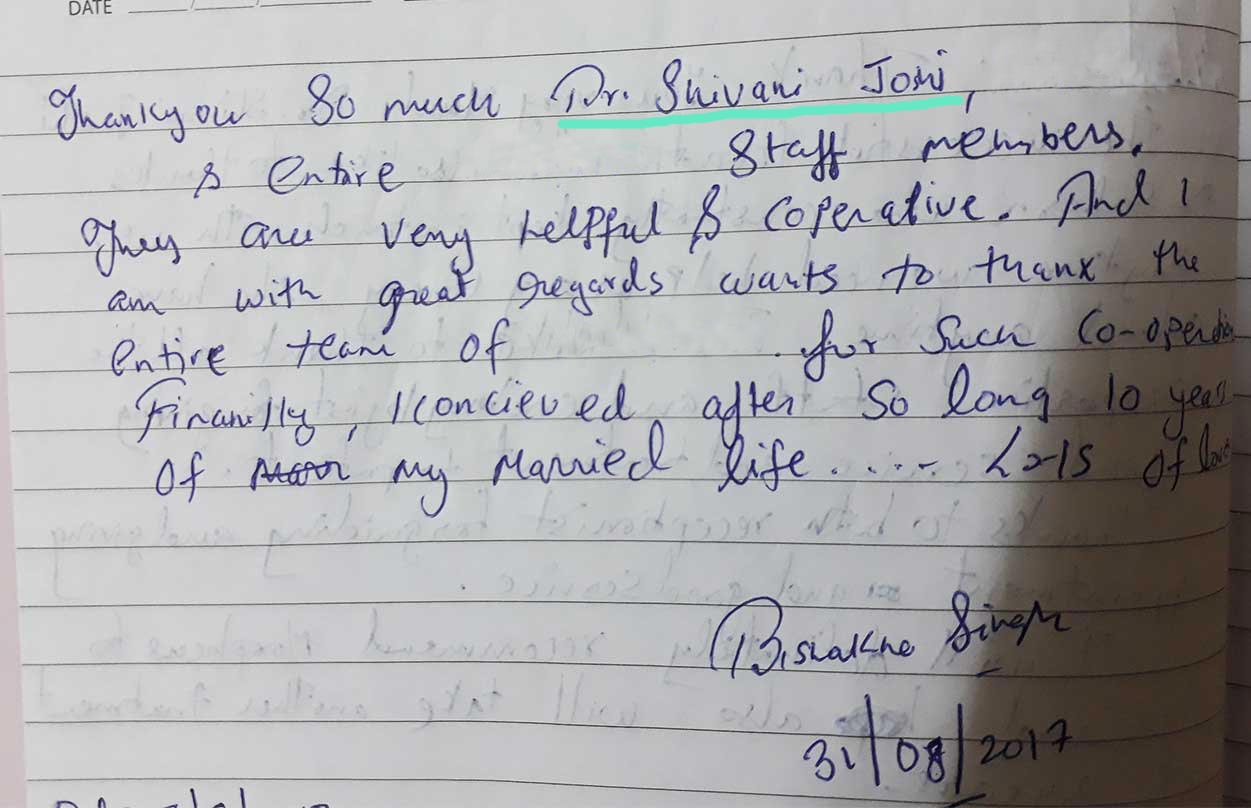 DATE
Thankyou So much Dr. Shivani Joshi,
& Entire Staff members.
They are very helpful & Coperative. And I
am with great regards wants to thank the
Entire team of . for Such Co-operation
Finanilly, I concieved after So long 10 years
Of my Married life..... Lots Of love
Bishakha Singh
31/08/2017